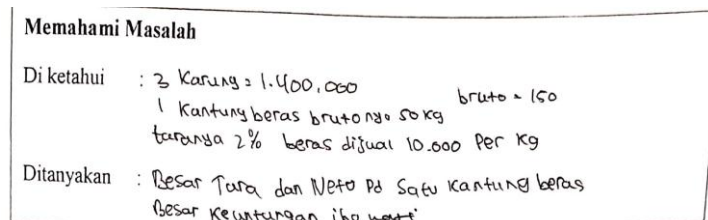 Memahami Masalah
Di ketahui : 3 Karung = 1.400.000 bruto = 150
1 Kantung beras brutonya 50 kg
taranya 2% beras dijual 10.000 Per Kg
Ditanyakan : Besar Tara dan Neto Pd Satu Kantung beras
Besar Keuntungan ibu